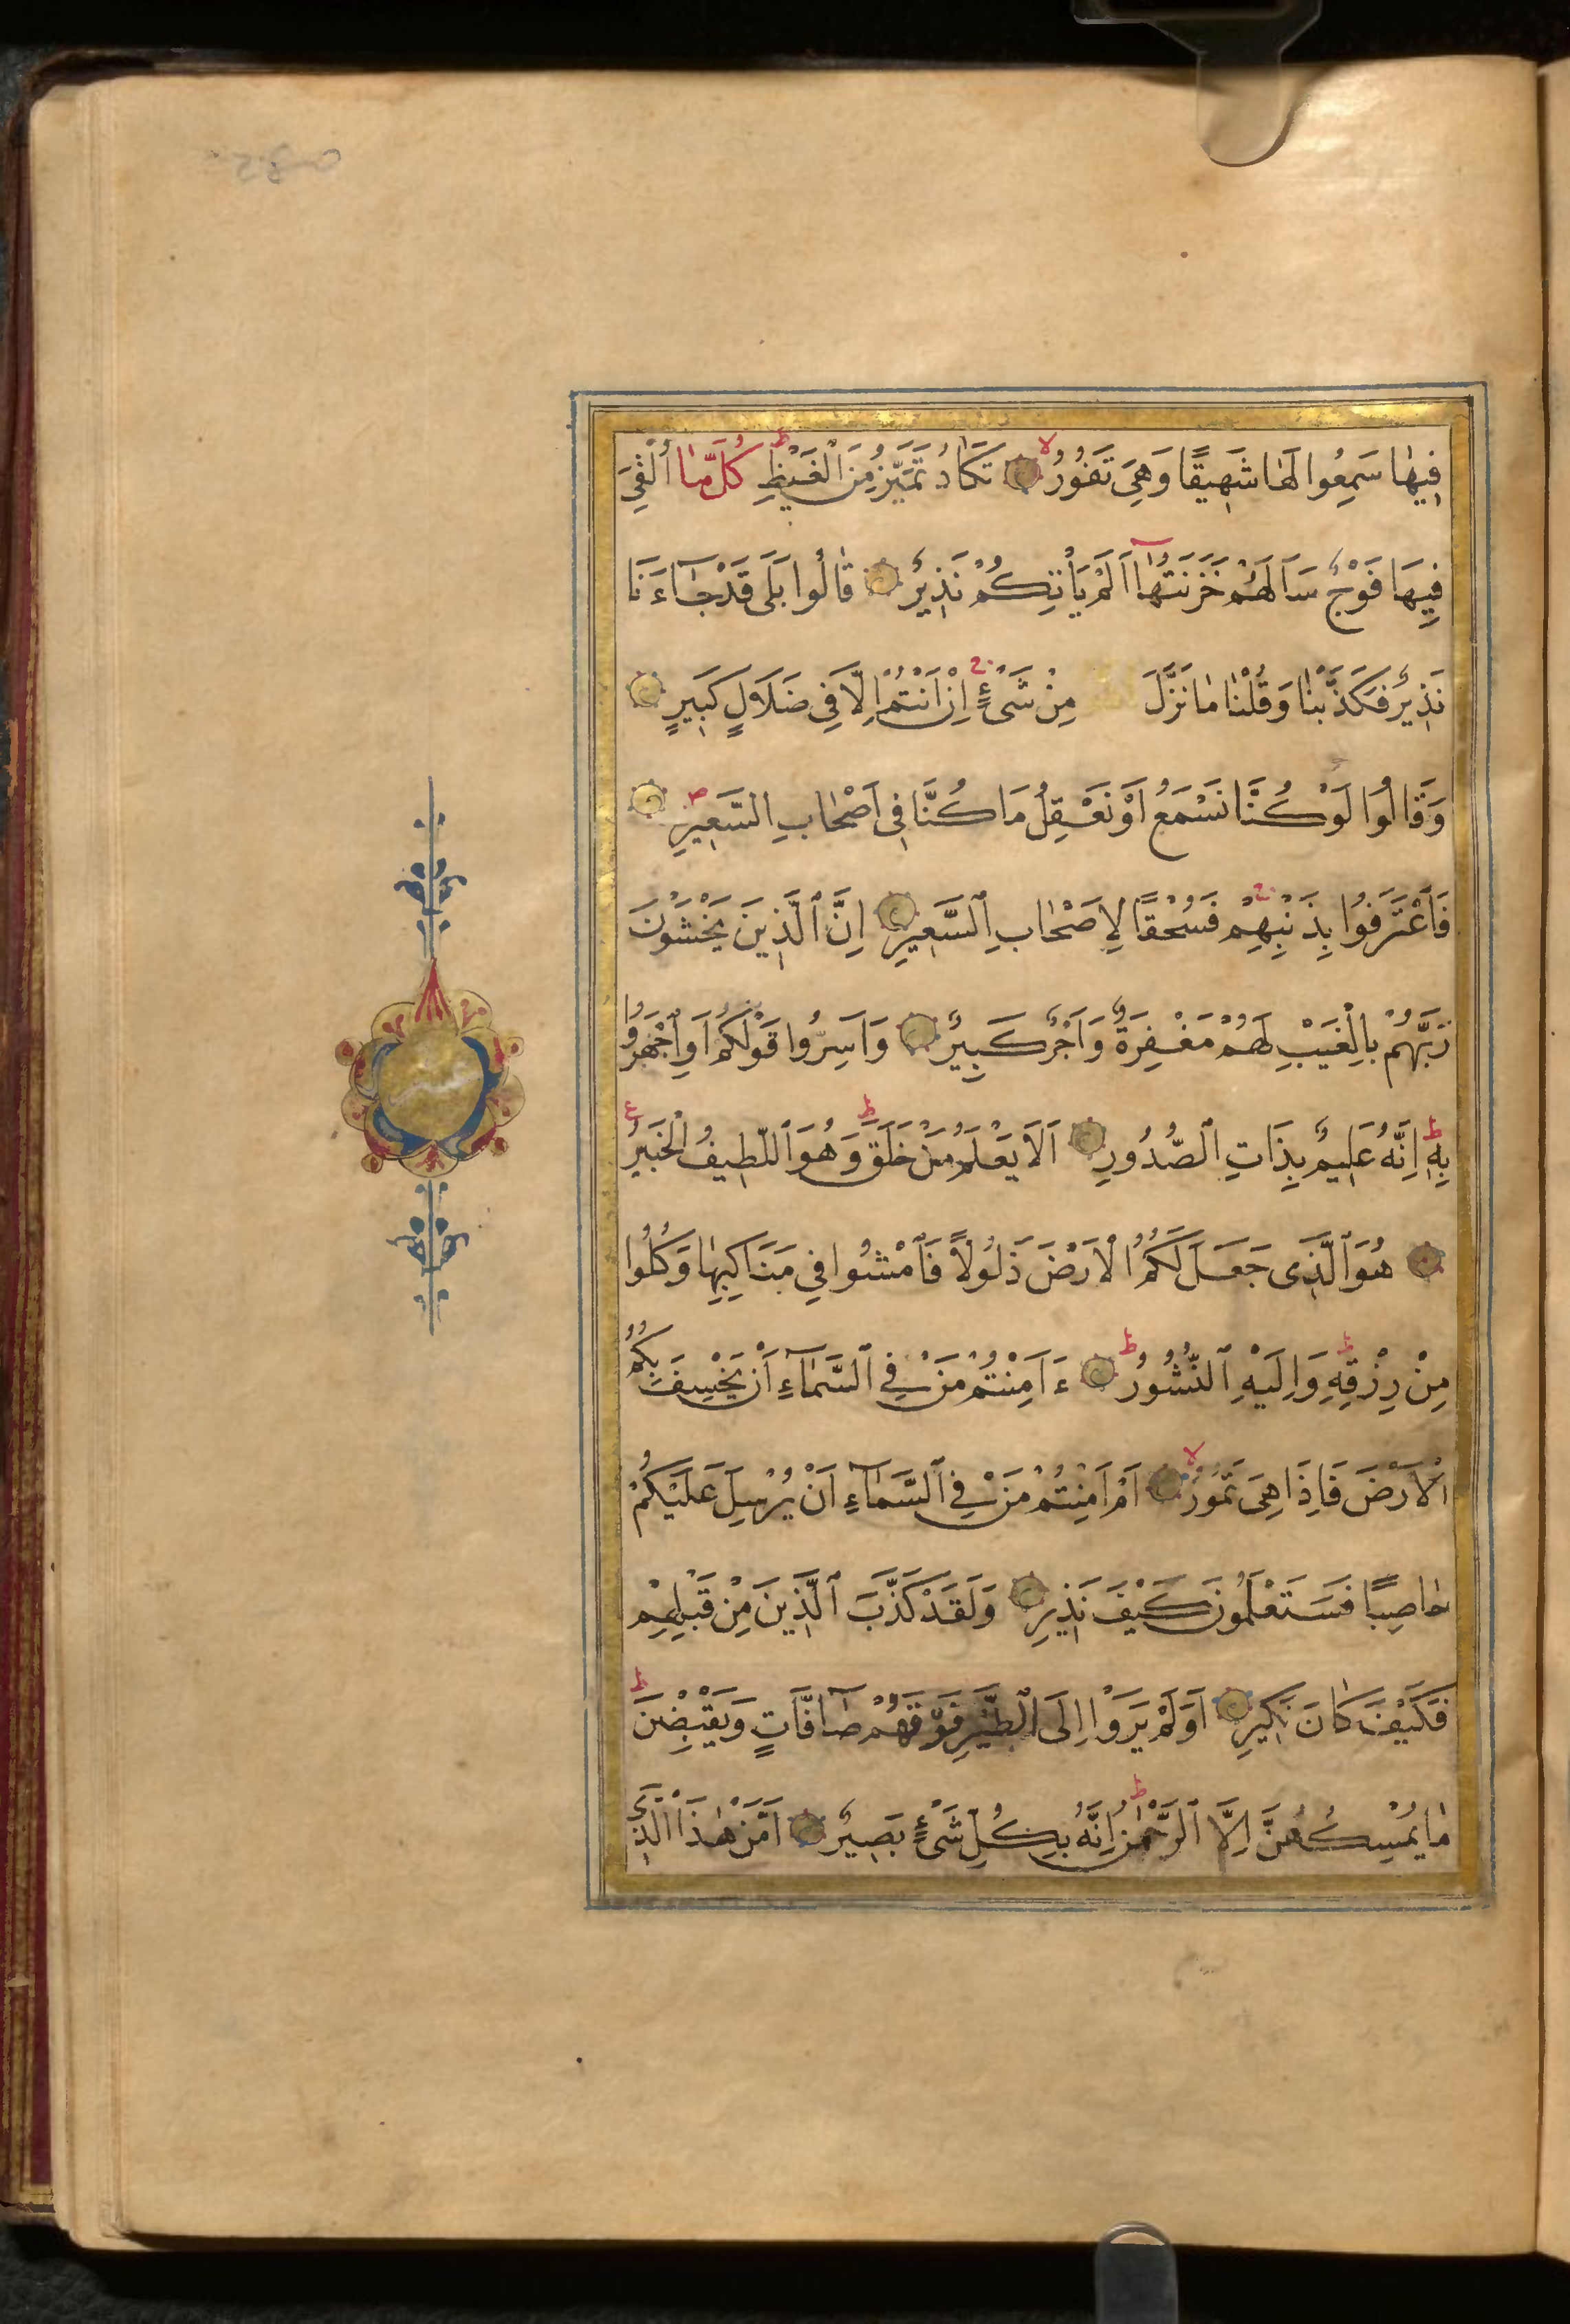 فِيهٰا سَمِعُوا لَهٰا شَهِيقًا وَهِيَ تَفُورُ ۙ تَكٰادُ تَمَيَّزُ مِنَ ٱلْغَيْظِ ؕ كُلَّمٰا اُلْقِيَ
فِيهَا فَوْجٌ سَاَلَهُمْ خَزَنَتُهٰٓا اَلَمْ يَأْتِكُمْ نَذِيرٌ قٰالُوا بَلَى قَدْ جٰٓاءَنَا
نَذِيرٌ فَكَذَّبْنٰا وَقُلْنٰا مٰا نَزَّلَ مِنْ شَىْءٍ ۚ اِنْ اَنْتُمْ اِلَّا فِي ضَلَالٍ كَبِيرٍ
وَقٰالُوا لَوْ كُنَّا نَسْمَعُ اَوْ نَعْقِلُ مَا كُنَّا فِى اَصْحٰابِ السَّعِيرِ
فَٱعْتَرَفُوا بِذَنْبِهِمْ ۚ فَسُحْقًا لِاَصْحٰابِ ٱلسَّعِيرِ اِنَّ ٱلَّذِينَ يَخْشَوْنَ
رَبَّهُمْ بِالْغَيْبِ لَهُمْ مَغْفِرَةٌ وَاَجْرٌ كَبِيرٌ وَاَسِرُّوا قَوْلَكُمْ اَوِ ٱجْهَرُوا
بِهِ ؕ اِنَّهُ عَلِيمٌ بِذَاتِ ٱلصُّدُورِ اَلَا يَعْلَمُ مَنْ خَلَقَ ؕ وَهُوَ ٱللَّطِيفُ الْخَبِيرُ ع
هُوَ ٱلَّذِى جَعَلَ لَكُمُ ٱلْاَرْضَ ذَلُولًا فَٱمْشُوا فِي مَنَاكِبِهٰا وَكُلُوا
مِنْ رِزْقِهِ ؕ وَاِلَيْهِ ٱلنُّشُورُ ؕ ءَاَمِنْتُمْ مَنْ فِي ٱلسَّمٰٓاءِ اَنْ يَخْسِفَ بِكُمُ
ٱلْاَرْضَ فَاِذَا هِىَ تَمُورُ ۙ اَمْ اَمِنْتُمْ مَنْ فِي ٱلسَّمٰٓاءِ اَنْ يُرْسِلَ عَلَيْكُمْ
حٰاصِبًا فَسَتَعْلَمُونَ كَيْفَ نَذِيرِ وَلَقَدْ كَذَّبَ ٱلَّذِينَ مِنْ قَبْلِهِمْ
فَكَيْفَ كٰانَ نَكِيرِ اَوَلَمْ يَرَوْا اِلَى ٱلطَّيْرِ فَوْقَهُمْ صٰٓافَّاتٍ وَيَقْبِضْنَ ؕ
مٰا يُمْسِكُهُنَّ اِلَّا ٱلرَّحْمٰنُ ؕ اِنَّهُ بِكُلِّ شَىْءٍ بَصِيرٌ اَمَّنْ هٰذَا ٱلَّذِي